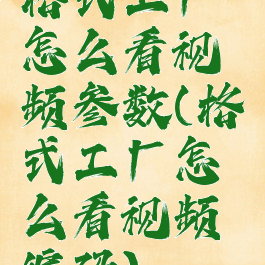 格式工厂
怎么看视
频参数(格
式工厂怎
么看视频
编码)